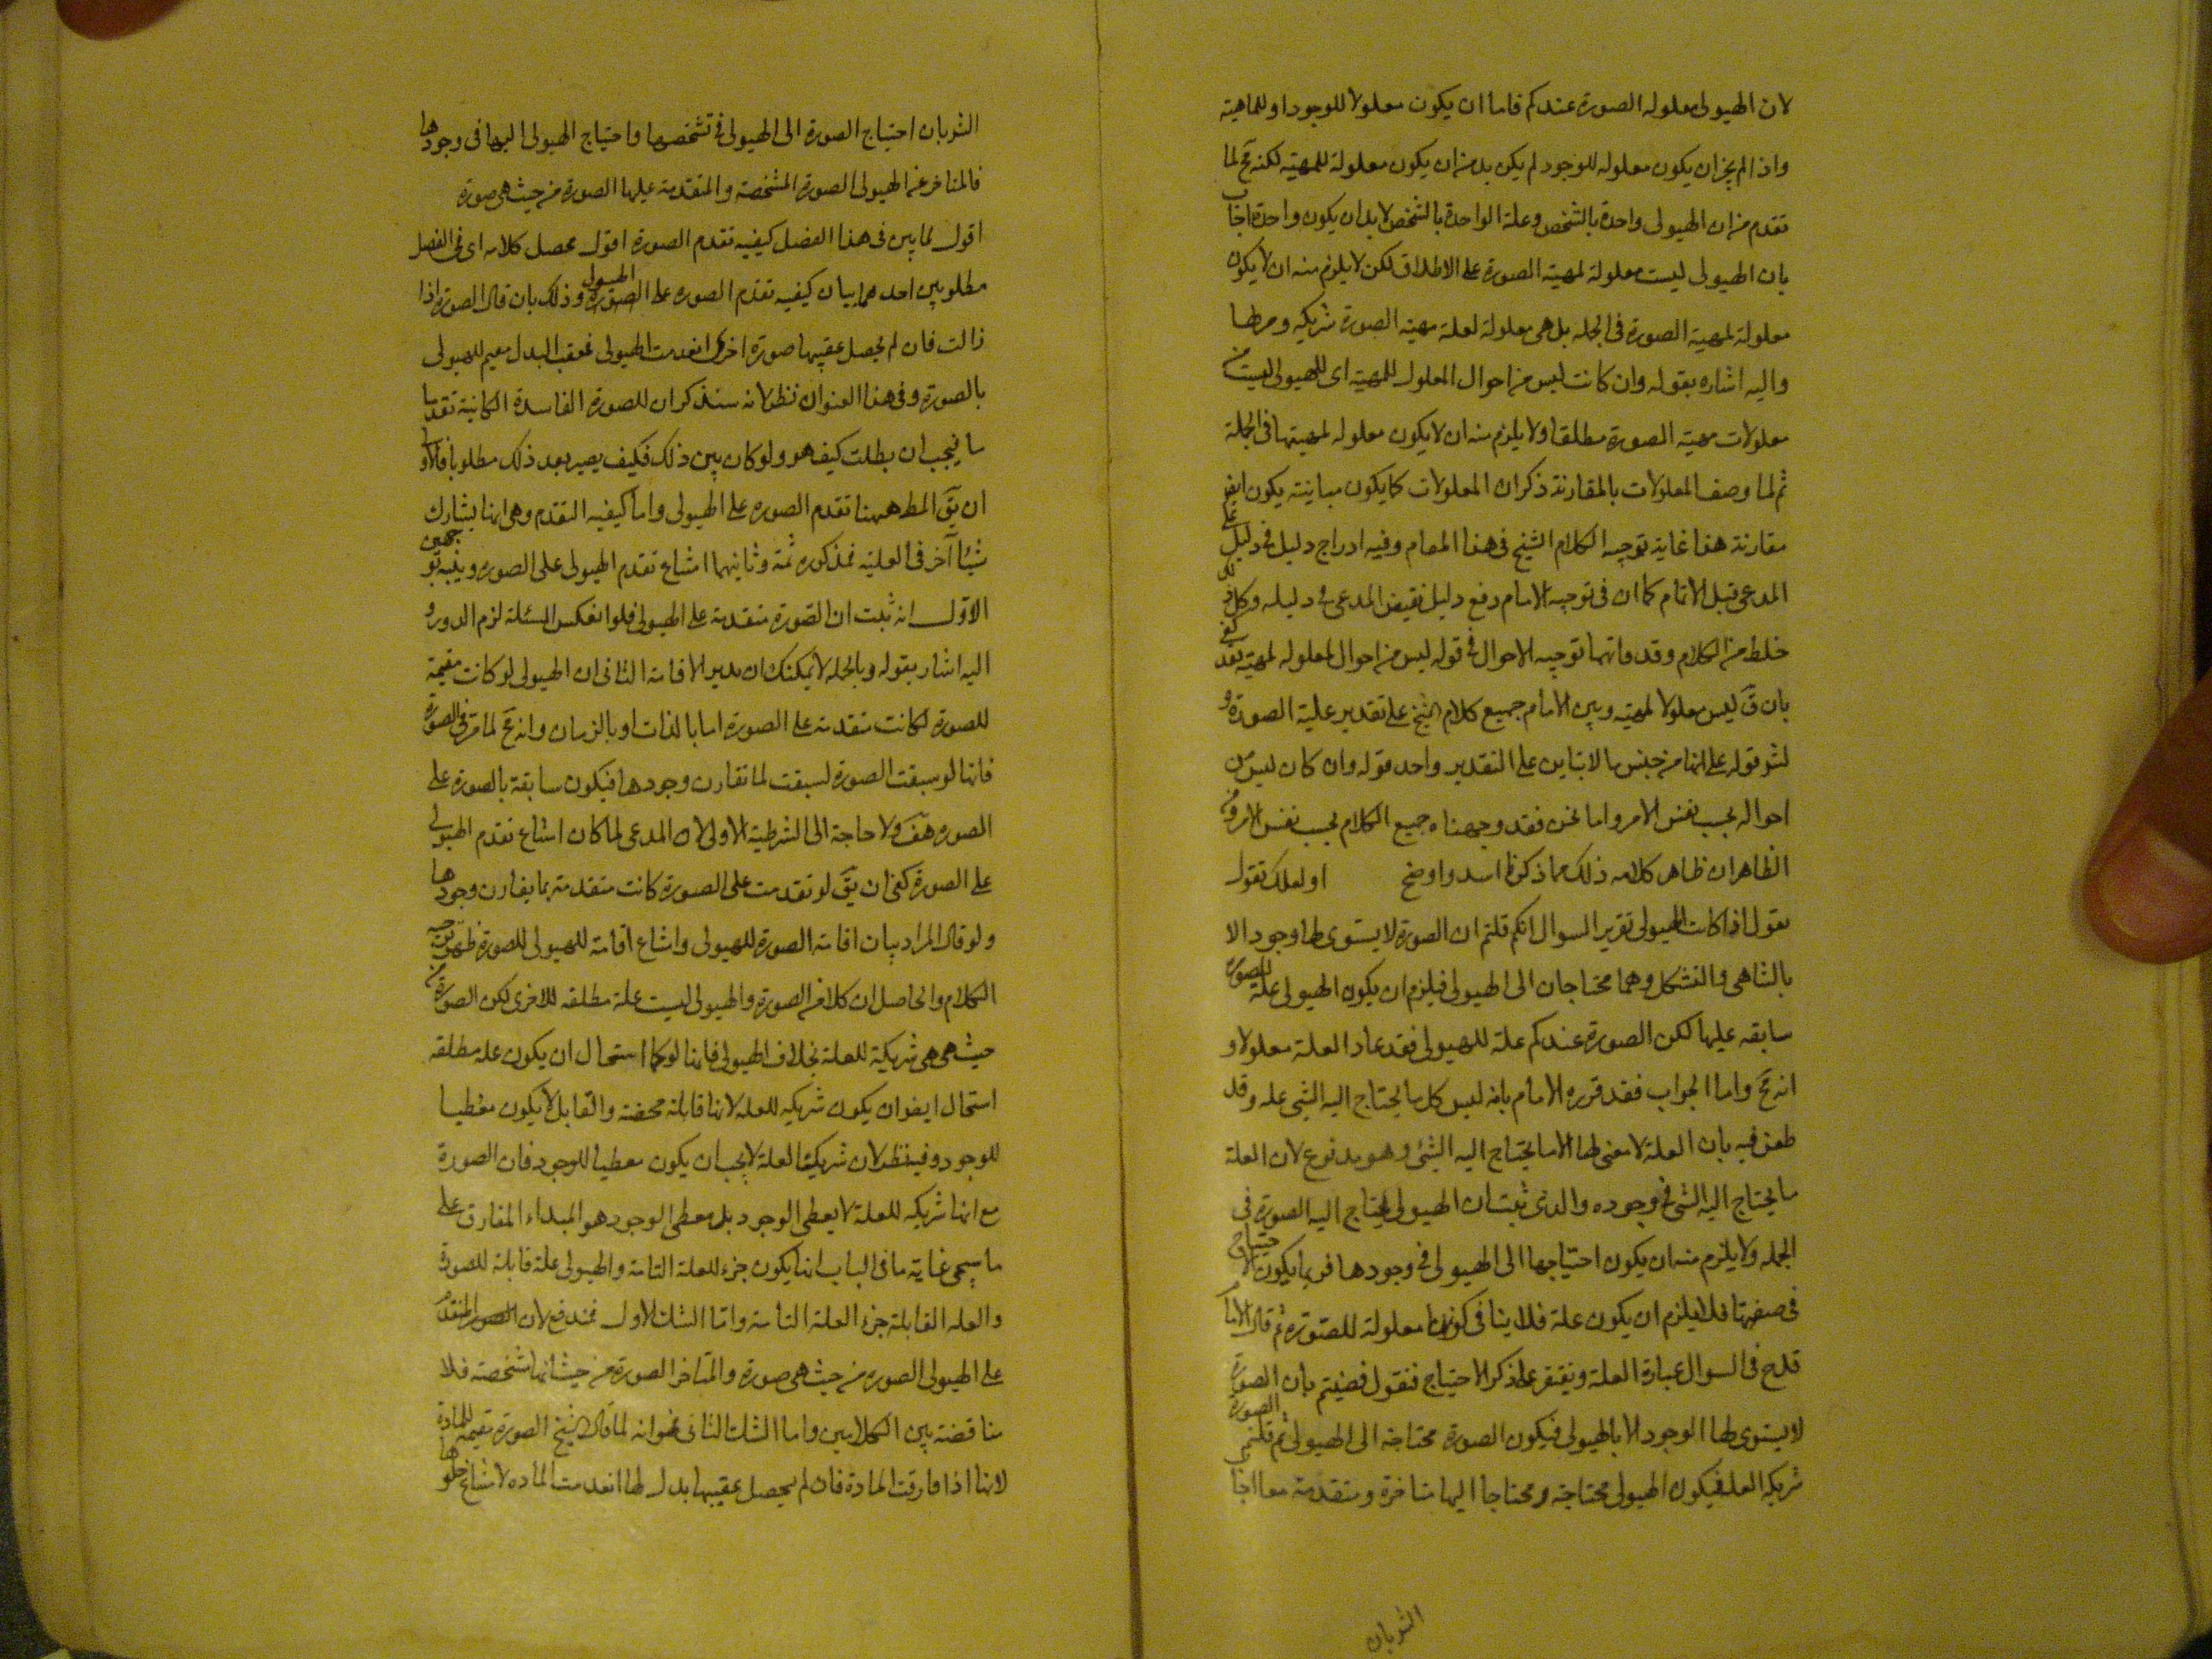 لان الهيولى معلوله الصورة عندكم فاما ان يكون معلولا للوجود او للماهية
واذا لم يجز ان يكون معلوله للوجود لم يكن بد من ان يكون معلولة للمهية لكنه مح لما
تقدم من ان الهيولى واحدة بالشخص وعلة الواحدة بالشخص لابد ان يكون واحدة اجاب
بان الهيولى ليست معلولة لمهية الصورة على الاطلاق لكن لا يلزم منه ان لا يكون
معلولة لمهية الصورة فى الجمله بل هى معلولة لعلة مهية الصورة شريكه
واليه اشاره بقوله وان كانت ليس من احوال المعلول للمهية اى الهيولى ليست من
معلولات مهية الصورة مطلقا ولا يلزم منه ان لا يكون معلوله لمهيتها فى الجملة
ثم لما وصف المعلولات بالمقارنة ذكر ان المعلولات كما يكون مباينة يكون ايض
مقارنة هذا غاية توجيه الكلام الشيخ فى هذا المقام وفيه ادراج دليل فى دليل على
المدعى قبل الاتمام كما ان فى توجيه الامام دفع دليل نقيض المدعى فى دليله وكل ذلك
خلط من الكلام وقد فاتهما توجيه الاحوال فى قوله ليس من احوال المعلوله لمهية
بان ق ليس معلولا لمهيته وبين الامام جميع كلام الشيخ على تقدير علية الصورة و
قوله على انها من جنس ما لا يباين على التقدير واحد قوله وان كان ليس من
احواله بحسب نفس الامر واما نحن فقد وجهناه جميع الكلام بحسب نفس الامر
الظاهر ان ظاهر كلامه ذلك مما ذكرنا اسد واوضح او لعلك تقول
بقول اذا كانت الهيولى تقرير السوال انكم قلتم ان الصورة لا يستوى لها وجود الا
بالتناهى والتشكل وهما محتاجان الى الهيولى فيلزم ان يكون الهيولى علة للصورة
سابقه عليها لكن الصورة عندكم علة للهيولى فقد عاد العلة معلولا و
انه مح واما الجواب فقد قرره الامام بانه ليس كل ما يحتاج اليه الشى عله وقد
طعن فيه بان العلة لا معنى لها الا ما يحتاج اليه الشئ وهو مدفوع لان العلة
ما يحتاج اليه الشى فى وجوده والذى ثبت ان الهيولى يحتاج اليه الصورة فى
الجمله ولا يلزم منه ان يكون احتياجها الى الهيولى فى وجودها فربما يكون الاحتياج
فى صفتها فلا يلزم ان يكون علة فلا ينافى كونها معلولة للصورة ثم قال الامام
قدح فى السوال عبارة العلة ونقتصر على ذكر الاحتياج فنقول قضيتم بان الصورة
لا يستوى لها الوجود الا بالهيولى فيكون الصورة محتاجة الى الهيولى ثم قلتم الصورة
شريكه العلة فيكون الهيولى محتاجة ومحتاجا اليها متاخرة ومتقدمة معا اجاب
الشر بان
الشر بان احتياج الصورة الى الهيولى فى تشخصها واحتياج الهيولى اليها فى وجودها
فالمتاخر عن الهيولى الصورة المشخصة والمتقدمة عليها الصورة من حيث هى صورة
اقول لما بين فى هذا الفصل كيفيه تقدم الصورة اقول محصل كلامه اى فى الفصل
مطلوبين احدهما بيان كيفيه تقدم الصوره على الصورة الهيولى وذلك بان قال الصورة اذا
زالت فان لم يحصل عقيبها صورة اخرى انعدمت الهيولى فمعقب البدل مقيم للهيولى
بالصورة وفى هذا العنوان نظر لانه سنذكر ان للصورة الفاسدة الكائنية تقدما
ما فيجب ان يطلب كيف هو ولو كان بين ذلك فكيف يصير بعد ذلك مطلوبا فالاولى
ان يق المط ههنا تقدم الصوره على الهيولى واما كيفيه التقدم وهى انها يشارك
شيئا آخر فى العلية فمذكوره ثمة وثانيهما امتناع تقدم الهيولى على الصوره وبينه بوجهين
الاول انه ثبت ان الصورة متقدمة على الهيولى فلو انعكس المسئلة لزم الدور و
اليه اشار بقوله وبالجمله لا يمكنك ان تدير الاقامة الثانى ان الهيولى لو كانت مقيمة
للصورة لكانت متقدمة على الصورة اما بالذات او بالزمان وانه مح لما مر فى الصورة
فانها لو سبقت الصورة لسبقت لما تقارن وجودها فيكون سابقة بالصورة على
الصوره هف ولا حاجة الى الشرطية الاولى لان المدعى لما كان امتناع تقدم الهيولى
على الصورة كفى ان يق لو تقدمت على الصورة كانت متقدمة بما يقارن وجودها
ولو قال المراد بيان اقامة الصورة للهيولى وامتناع اقامة للهيولى للصورة ظهر توجيه
الكلام والحاصل ان كلا من الصورة والهيولى ليست علة مطلقه للاخرى لكن الصورة من
حيث هى هى شريكة للعلة بخلاف الهيولى فانها لو كما استحال ان يكون عله مطلقه
استحال ايض ان يكون شريكه للعله لانها قابلة محضة والقابل لا يكون معطيا
للوجود وفيه نظر لان شريك العلة لا يجب ان يكون معطيا للوجود فان الصورة
مع انها شريكه للعلة لا يعطى الوجود بل معطى الوجود هو المبداء المفارق على
ما سيجى غاية ما فى الباب انها يكون جزء للعلة التامة والهيولى علة قابلة للصورة
والعله القابلة جزء العلة التامة واما الشك الاول فمندفع لان الصورة المتقدم
على الهيولى الصوره من حيث هى صورة والمتاخر الصورة من حيث انها مشخصة فلا
مناقضة بين الكلامين واما الشك الثانى فهو انه لما قال الشيخ الصورة مقيمة للمادة
لانها اذا فارقت المادة فان لم يحصل عقيبها بدل لها انعدمت الماده لامتناع خلوها